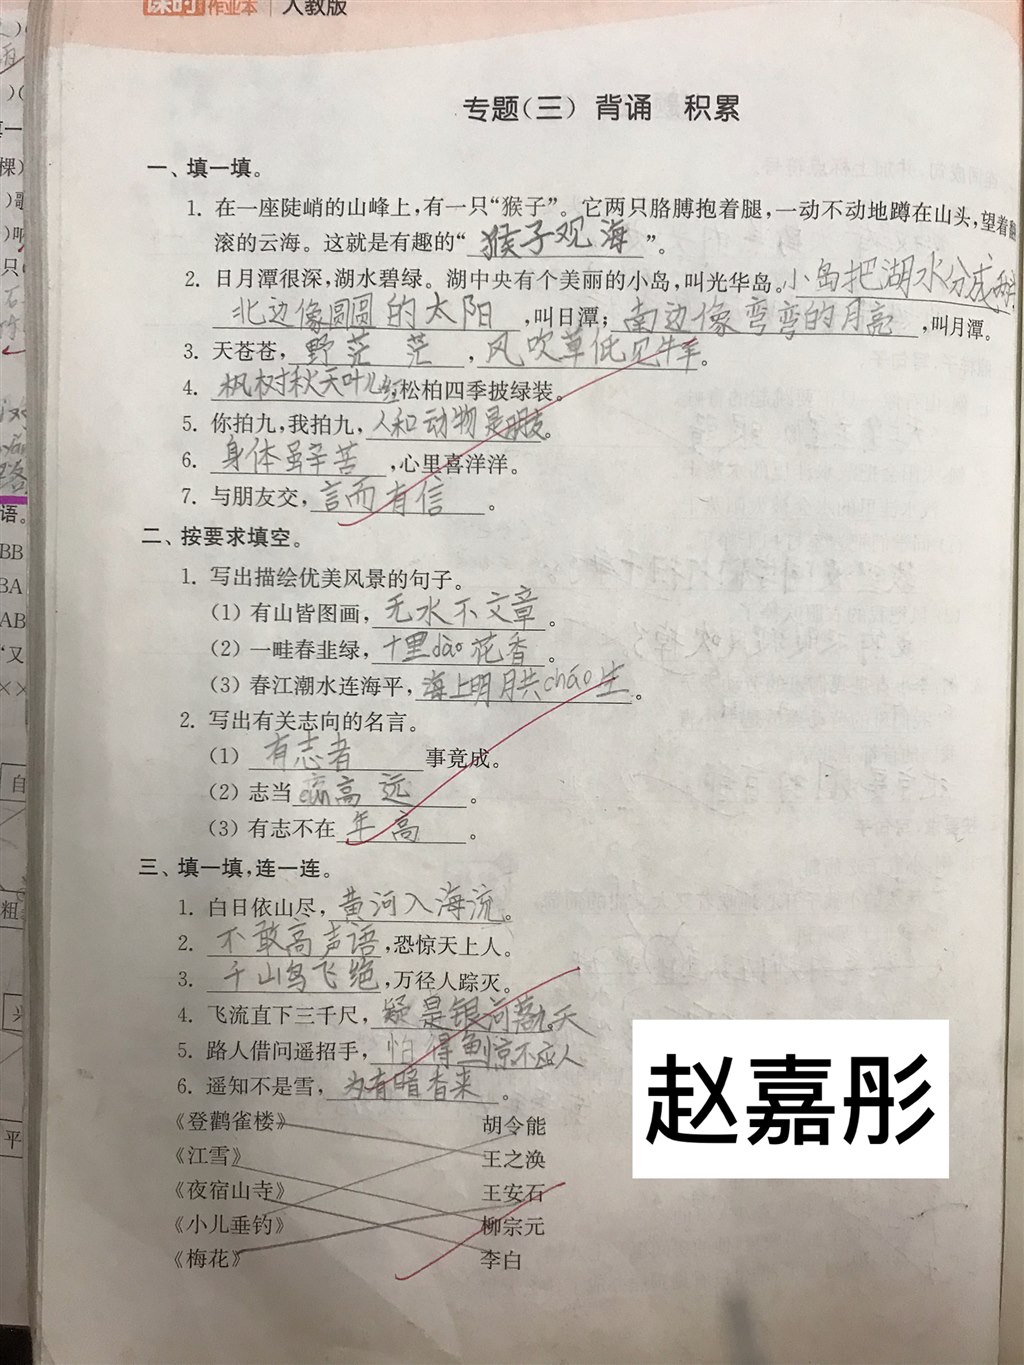 课时作业本 人教版
专题(三) 背诵 积累
一、填一填。
1. 在一座陡峭的山峰上,有一只“猴子”。它两只胳膊抱着腿,一动不动地蹲在山头,望着翻
滚的云海。这就是有趣的“猴子观海”。
2. 日月潭很深,湖水碧绿。湖中央有个美丽的小岛,叫光华岛。小岛把湖水分成两半
北边像圆圆的太阳,叫日潭;南边像弯弯的月亮,叫月潭。
3. 天苍苍,野茫茫,风吹草低见牛羊。
4. 枫树秋天叶儿红松柏四季披绿装。
5. 你拍九,我拍九,人和动物是朋友。
6. 身体虽辛苦,心里喜洋洋。
7. 与朋友交,言而有信。
二、按要求填空。
1. 写出描绘优美风景的句子。
(1) 有山皆图画,无水不文章。
(2) 一畦春韭绿,十里dào花香。
(3) 春江潮水连海平,海上明月共cháo生。
2. 写出有关志向的名言。
(1) 有志者事竟成。
(2) 志当高远。
(3) 有志不在年高。
三、填一填,连一连。
1. 白日依山尽,黄河入海流。
2. 不敢高声语,恐惊天上人。
3. 千山鸟飞绝,万径人踪灭。
4. 飞流直下三千尺,疑是银河落九天
5. 路人借问遥招手,怕得鱼惊不应人
6. 遥知不是雪,为有暗香来。
《登鹳雀楼》 胡令能
《江雪》 王之涣
《夜宿山寺》 王安石
《小儿垂钓》 柳宗元
《梅花》 李白
赵嘉彤